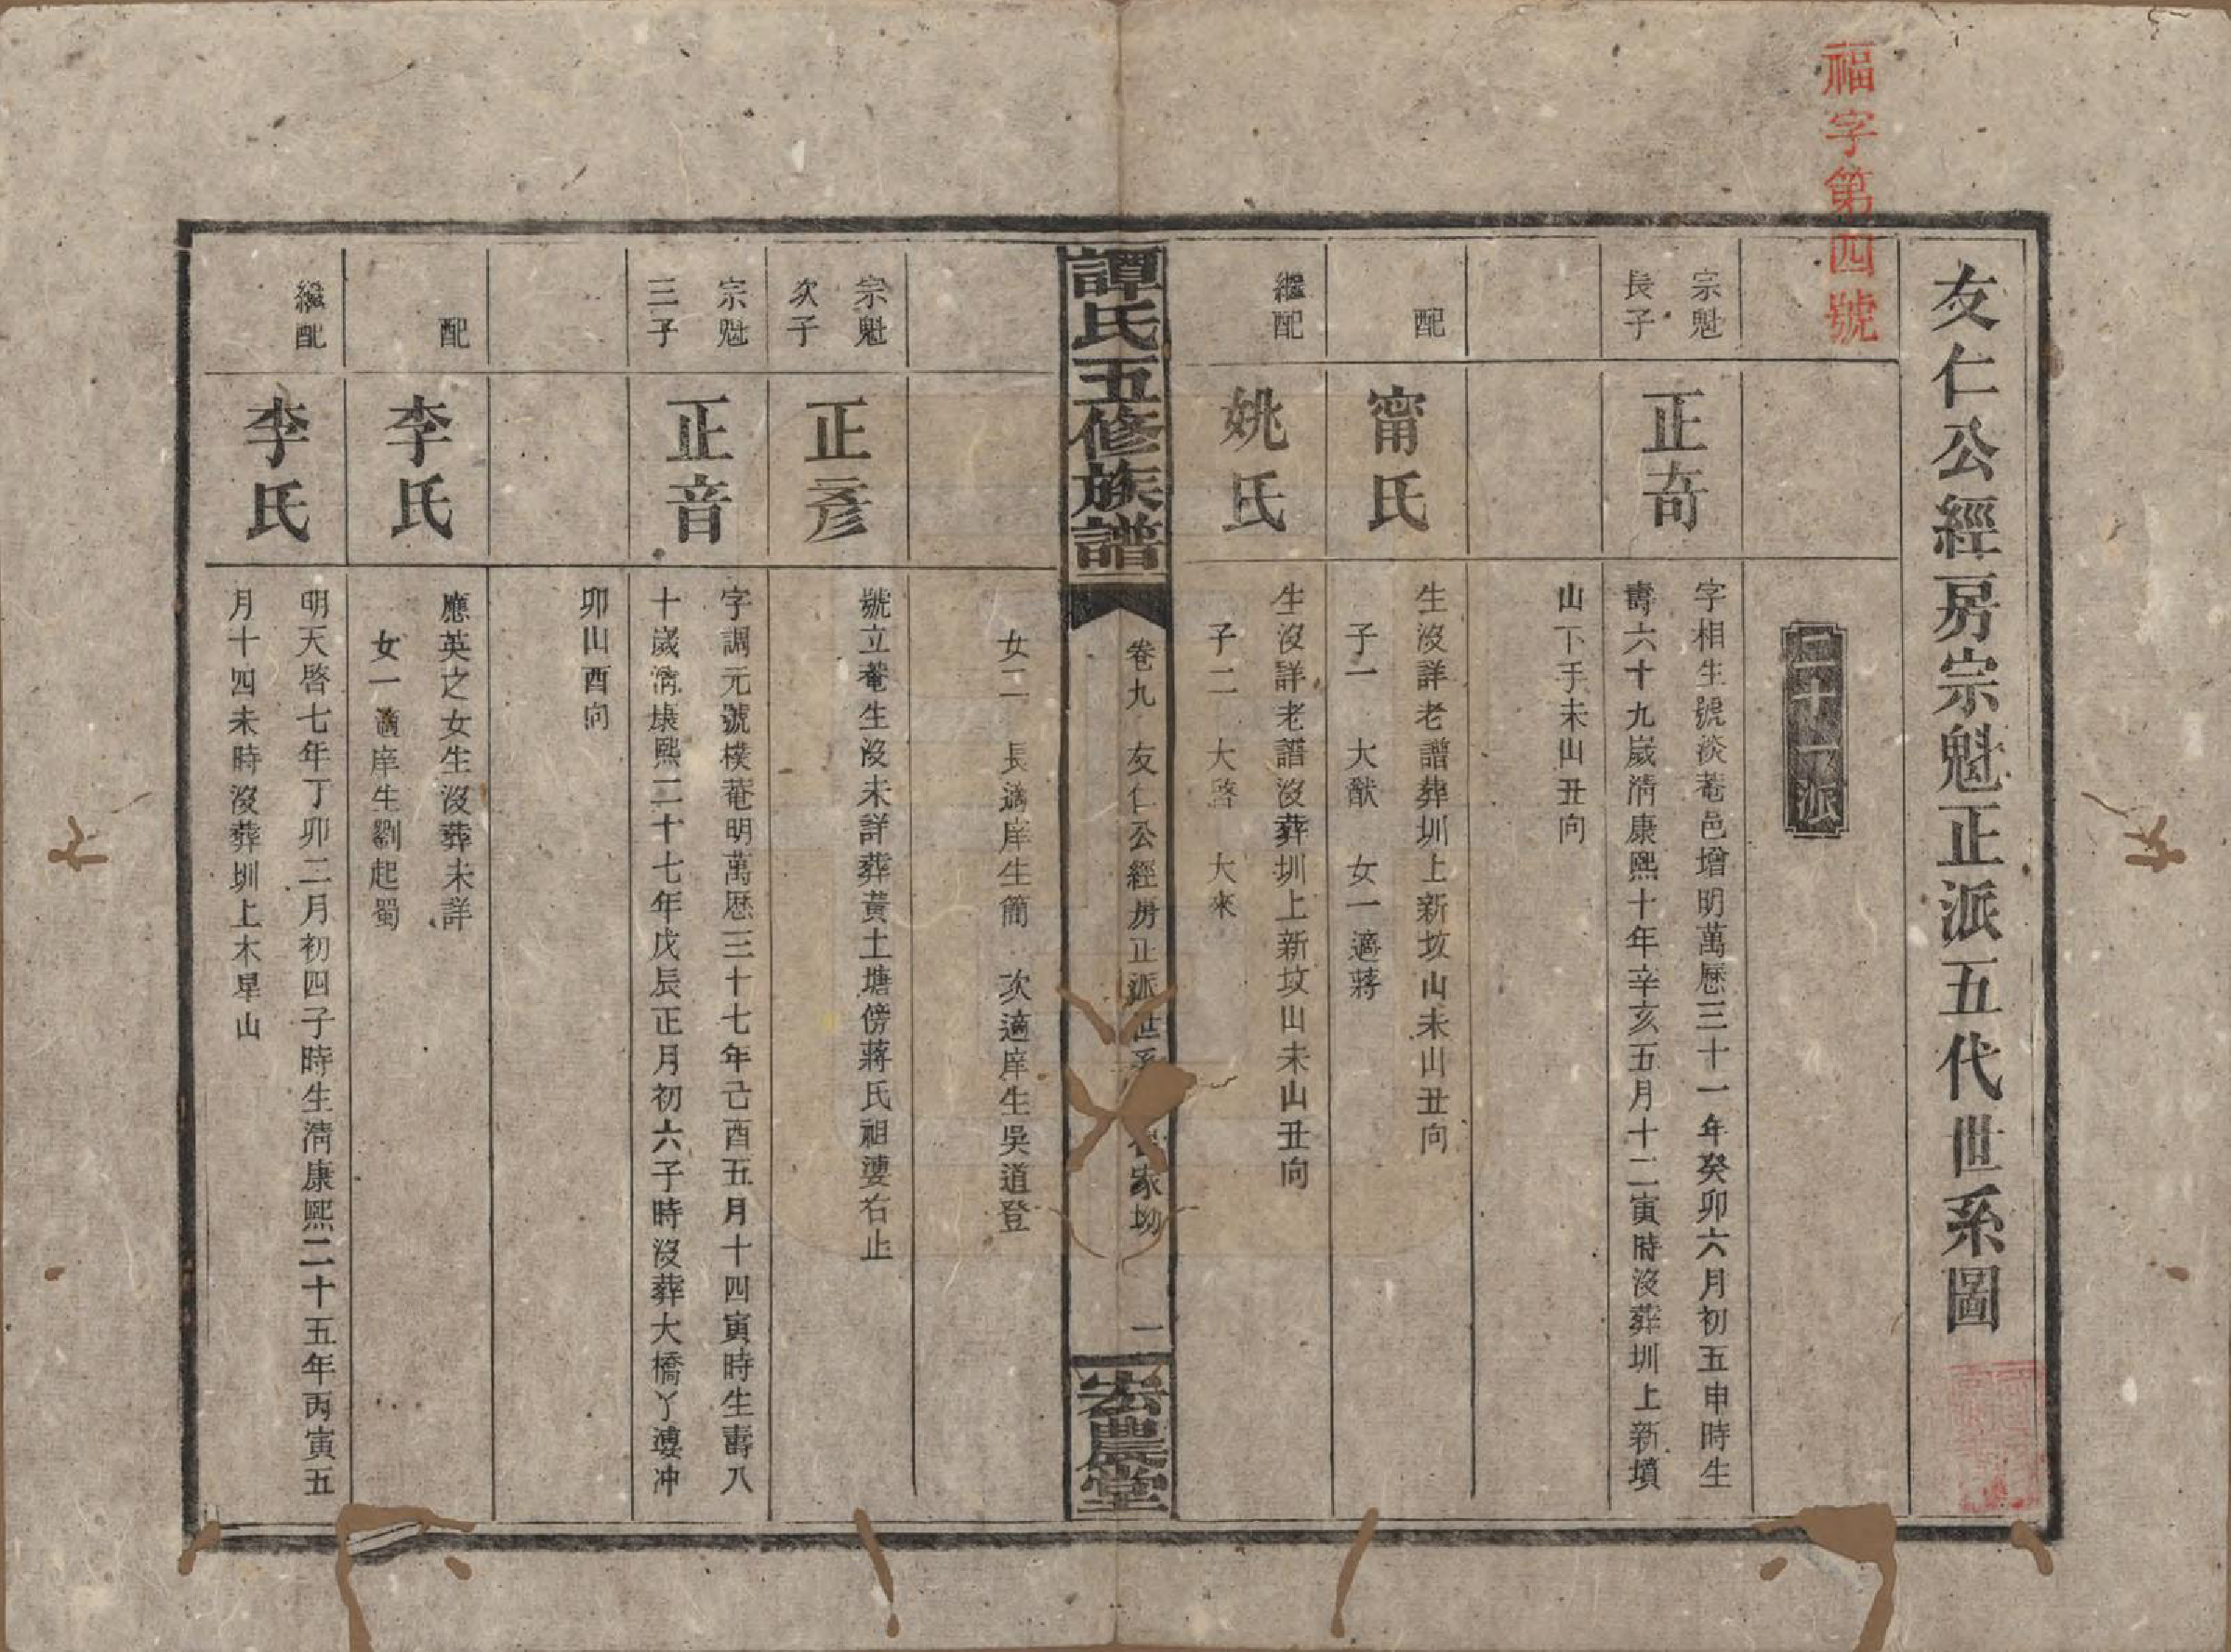 福字第四號
友仁公經房宗魁正派五代世系圖
二十一派
宗魁
長子
正奇
字相生號淡菴邑增明萬歷三十一年癸卯六月初五申時生
壽六十九歲清康熙十年辛亥五月十二寅時沒葬圳上新墳
山下手未山丑向
配
甯氏
生沒詳老譜葬圳上新坟山未山丑向
子一 大猷 女一適蔣
繼配
姚氏
生沒詳老譜沒葬圳上新坟山未山丑向
子二 大啓 大來
譚氏五修族譜
卷九 友仁公經房正派世系
家坳
一
宏農堂
女二 長適庠生簡 次適庠生吳道登
宗魁
次子
正彥
號立菴生沒未詳葬黃土塘傍蔣氏祖塋右止
宗魁
三子
正音
字調元號樸菴明萬歷三十七年己酉五月十四寅時生壽八
十歲清康熙二十七年戊辰正月初六子時沒葬大橋丫塘冲
卯山酉向
配
李氏
應英之女生沒葬未詳
女一適庠生劉起蜀
繼配
李氏
明天啓七年丁卯二月初四子時生清康熙二十五年丙寅五
月十四未時沒葬圳上木㫖山